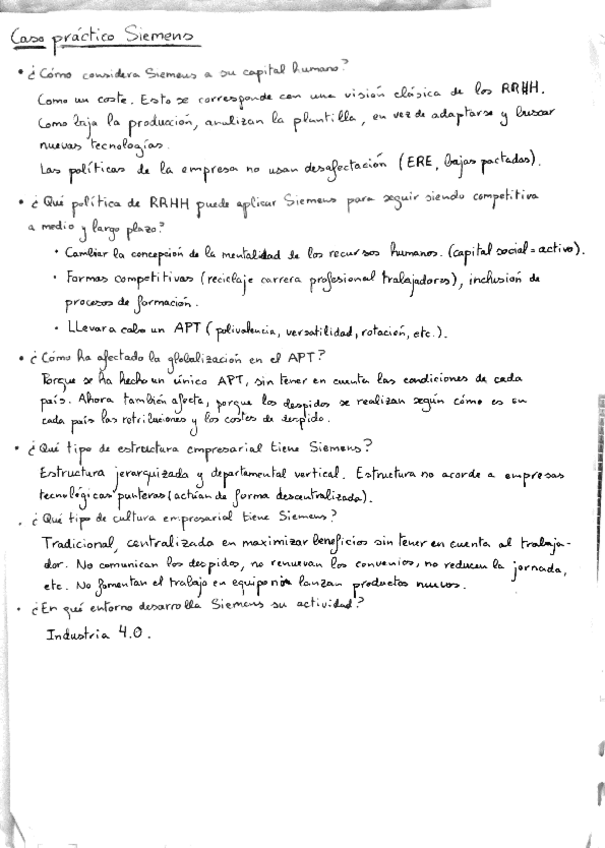 Caso práctico Siemens
• ¿Cómo considera Siemens a su capital humano?
Como un coste. Esto se corresponde con una visión clásica de los RRHH.
Como baja la producción, analizan la plantilla, en vez de adaptarse y buscar
nuevas tecnologías.
Las políticas de la empresa no usan desafectación (ERE, bajas pactadas).
• ¿Qué política de RRHH puede aplicar Siemens para seguir siendo competitiva
a medio y largo plazo?
• Cambiar la concepción de la mentalidad de los recursos humanos. (capital social = activo).
• Formas competitivas (reciclaje carrera profesional trabajadores), inclusión de
procesos de formación.
• Llevar a cabo un APT (polivalencia, versatilidad, rotación, etc.).
• ¿Cómo ha afectado la globalización en el APT?
Porque se ha hecho un único APT, sin tener en cuenta las condiciones de cada
país. Ahora también afecta, porque los despidos se realizan según cómo es en
cada país las retribuciones y los costes de despido.
• ¿Qué tipo de estructura empresarial tiene Siemens?
Estructura jerarquizada y departamental vertical. Estructura no acorde a empresas
tecnológicas punteras (actúan de forma descentralizada).
• ¿Qué tipo de cultura empresarial tiene Siemens?
Tradicional, centralizada en maximizar beneficios sin tener en cuenta al trabaja-
dor. No comunican los despidos, no renuevan los convenios, no reducen la jornada,
etc. No fomentan el trabajo en equipo ni lanzan productos nuevos.
• ¿En qué entorno desarrolla Siemens su actividad?
Industria 4.0.